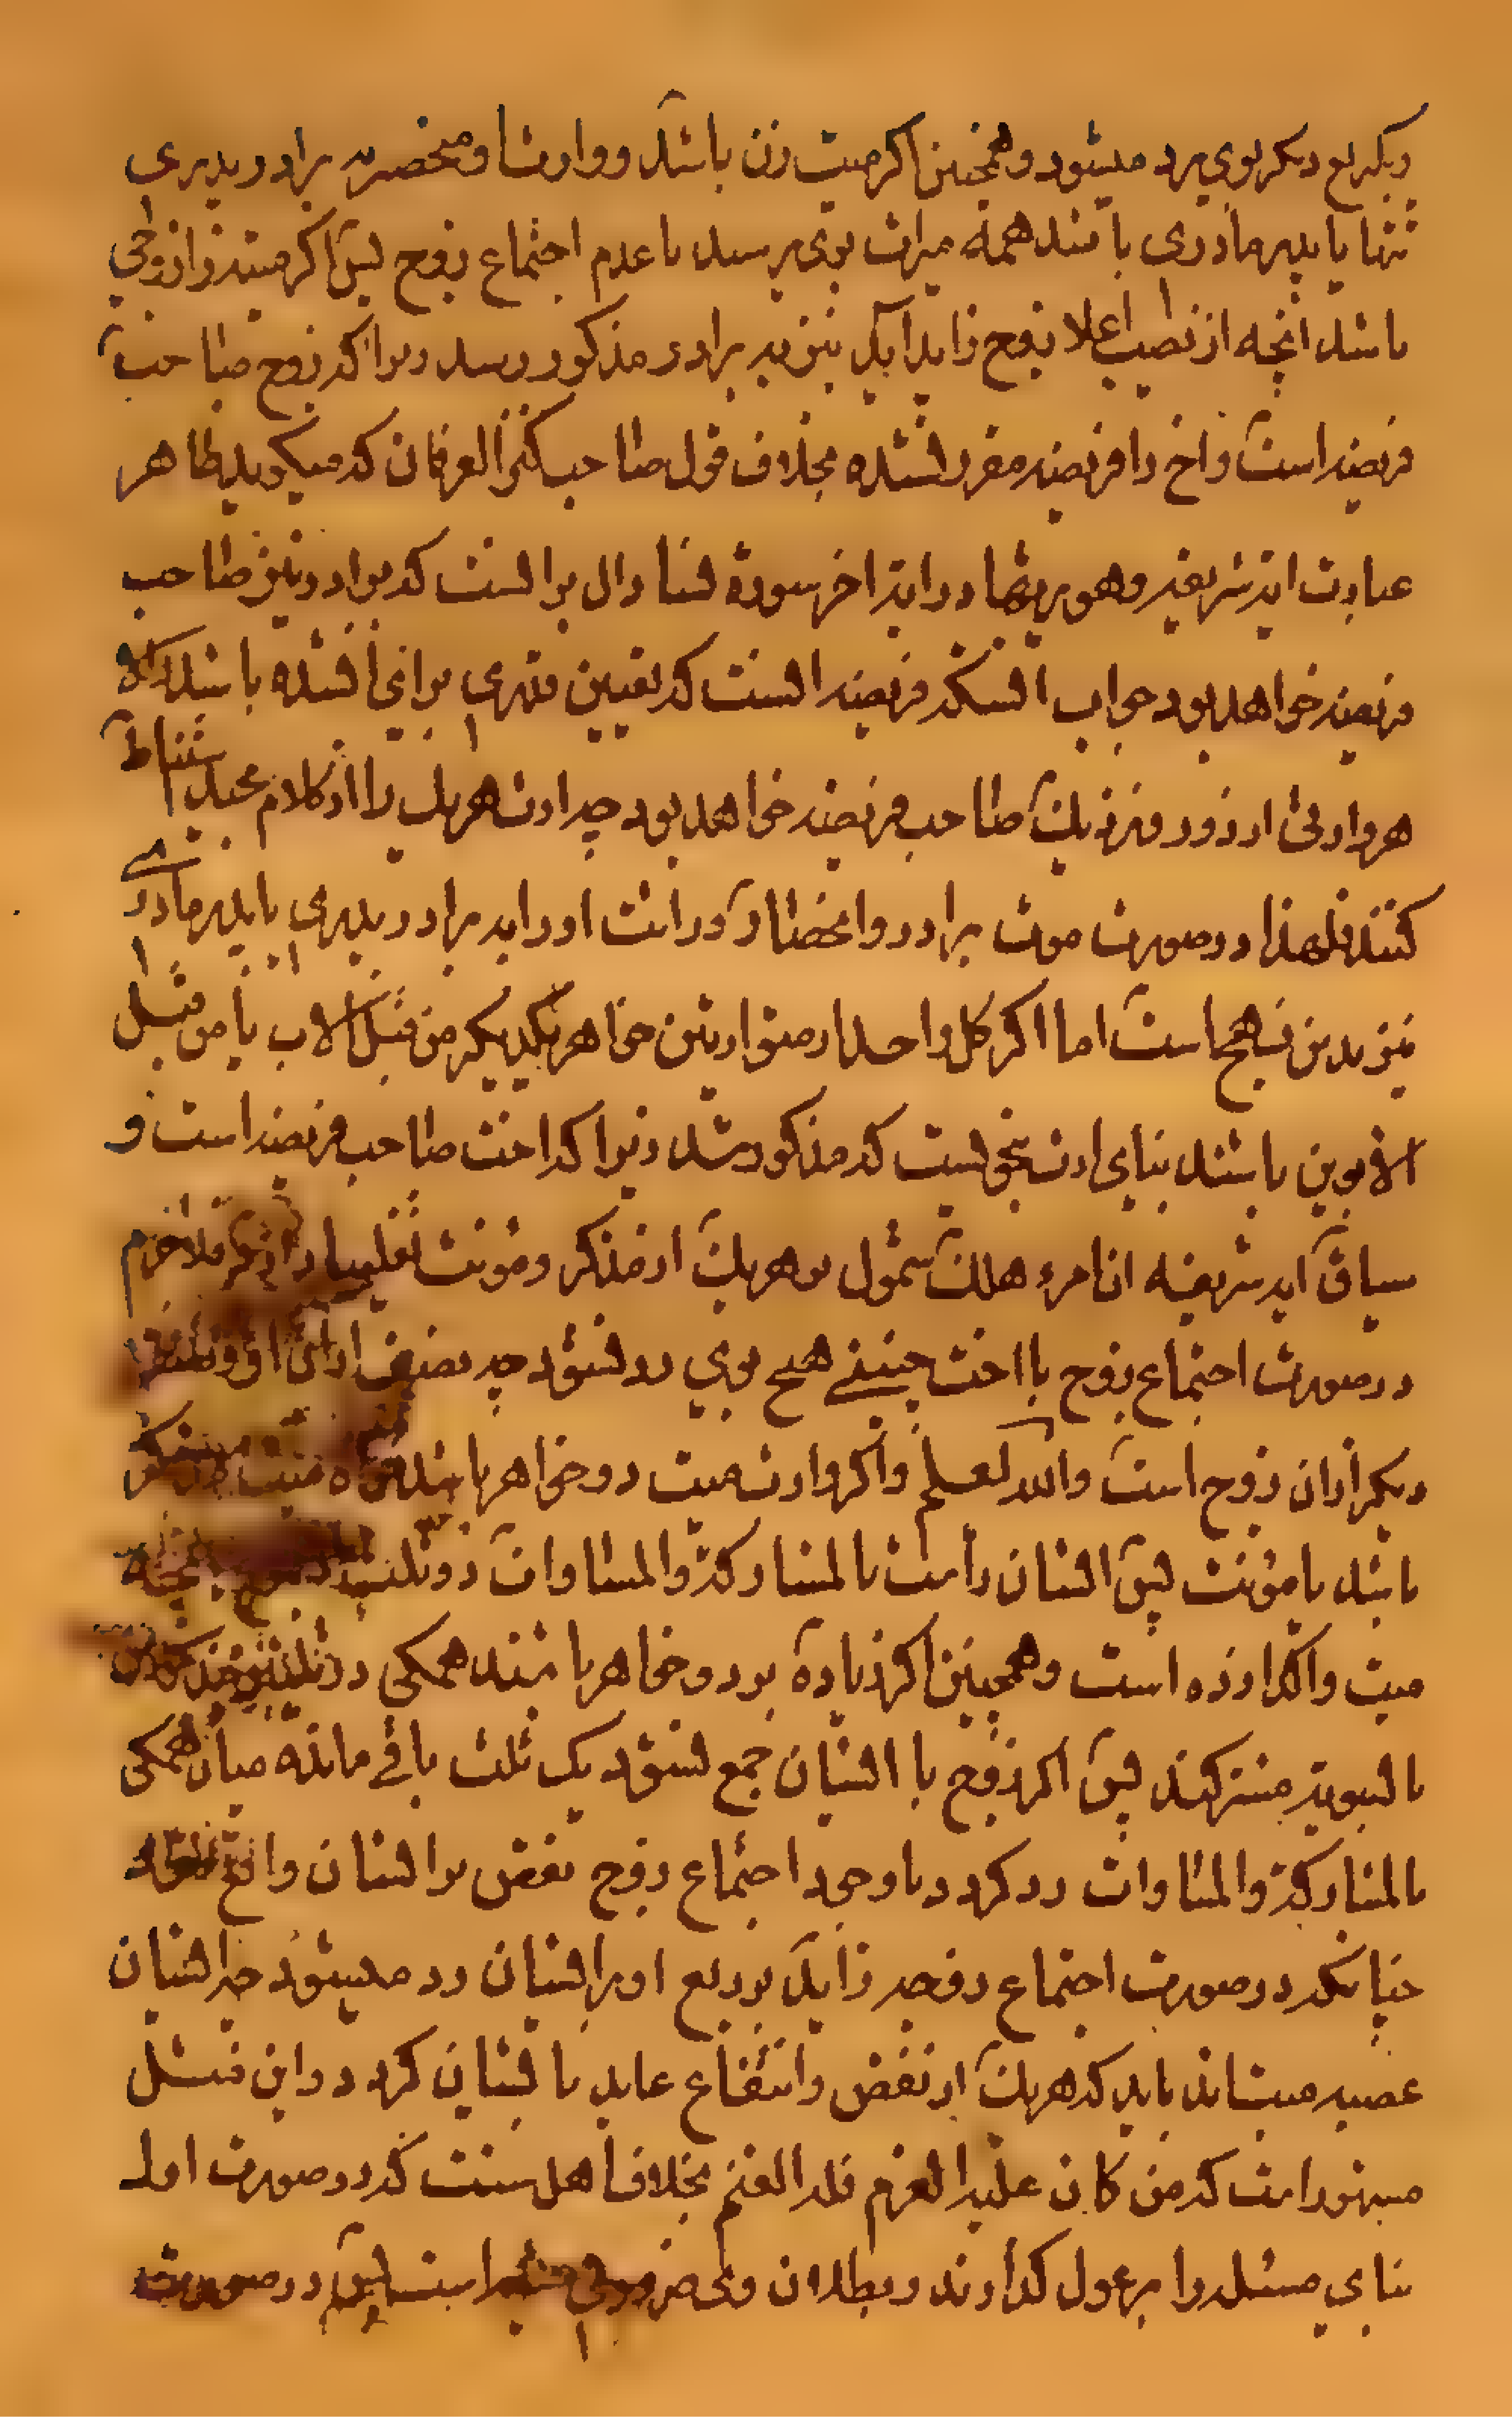 دیکربع دیکر بوی رد میشود و همچنین اکر میت زن باشد و وارث او منحصر به برادر پدری
تنها یا پدر مادری باشد همه میراث بوی میرسد با عدم اجتماع زوج پس اکر میته را زوجی
باشد انچه از نصیب اعلا زوج زاید آید نیز به برادر مذکور رسد زیرا که زوج صاحب
فریضه است و اخ را فریضه مقرر نشده بخلاف قول صاحب کنز العرفان که میکوید ظاهر
عبارت ایه شریفه وهو یرثها در ایه اخر سوره نسا دال بر انست که برادر نیز صاحب
فریضه خواهد بود جواب انست که فریضه انست که تعیین قدری برای آن شده باشد والا
هر وارثی از دور و نزدیک صاحب فریضه خواهد بود چه ارث هر یک را از کلام مجید استنباط
کنند فلهذا در صورت موت برادر و انحصار وراثت او را به برادر پدری یا پدر مادری
نیز بدین نهج است اما اکر کل واحد از متوارثین خواهر یکدیکر من قبل الاب یا من قبل
الابوین باشند بنای ارث بنحویست که مذکور شد زیرا که اخت صاحب فریضه است و
سیاق آیه شریفه ان امرء هلک شمول بر هر یک از مذکر و مونث تغلیبا دارد فلاجرم
در صورت اجتماع زوج با اخت چنینی هیچ بوی رد نشود چه نصف از آن او و نصف
دیکر از آن زوج است والله یعلم و اکر وارث میت دو خواهر باشند خواه میت مذکر
باشد یا مونث پس ایشان راست بالمشارکة والمساواة دو ثلث انچه
میت واکذارده است و همچنین اکر زیاده بر دو خواهر باشند همکی در ثلثین
بالسویه مشترکند پس اکر زوج با ایشان جمع نشود یک ثلث باقی مانده میان همکی
بالمشارکة والمساواة رد کردد و با وجود اجتماع زوج نقص بر ایشان واقع شود
چنانکه در صورت اجتماع زوجه زاید بر ربع او بر ایشان رد میشود چه ایشان
عصبه میت اند باید که هر یک از نقص و انتفاع عاید بایشان کردد و این مثل
مشهور است که من کان علیه الغرم فله الغنم بخلاف اهل سنت که در صورت اول
بنای مسئله را بر عول کذارند و بطلان وی ضروری است پس در صورت